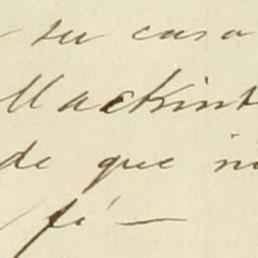 su casa
Mackint
de que
fé —